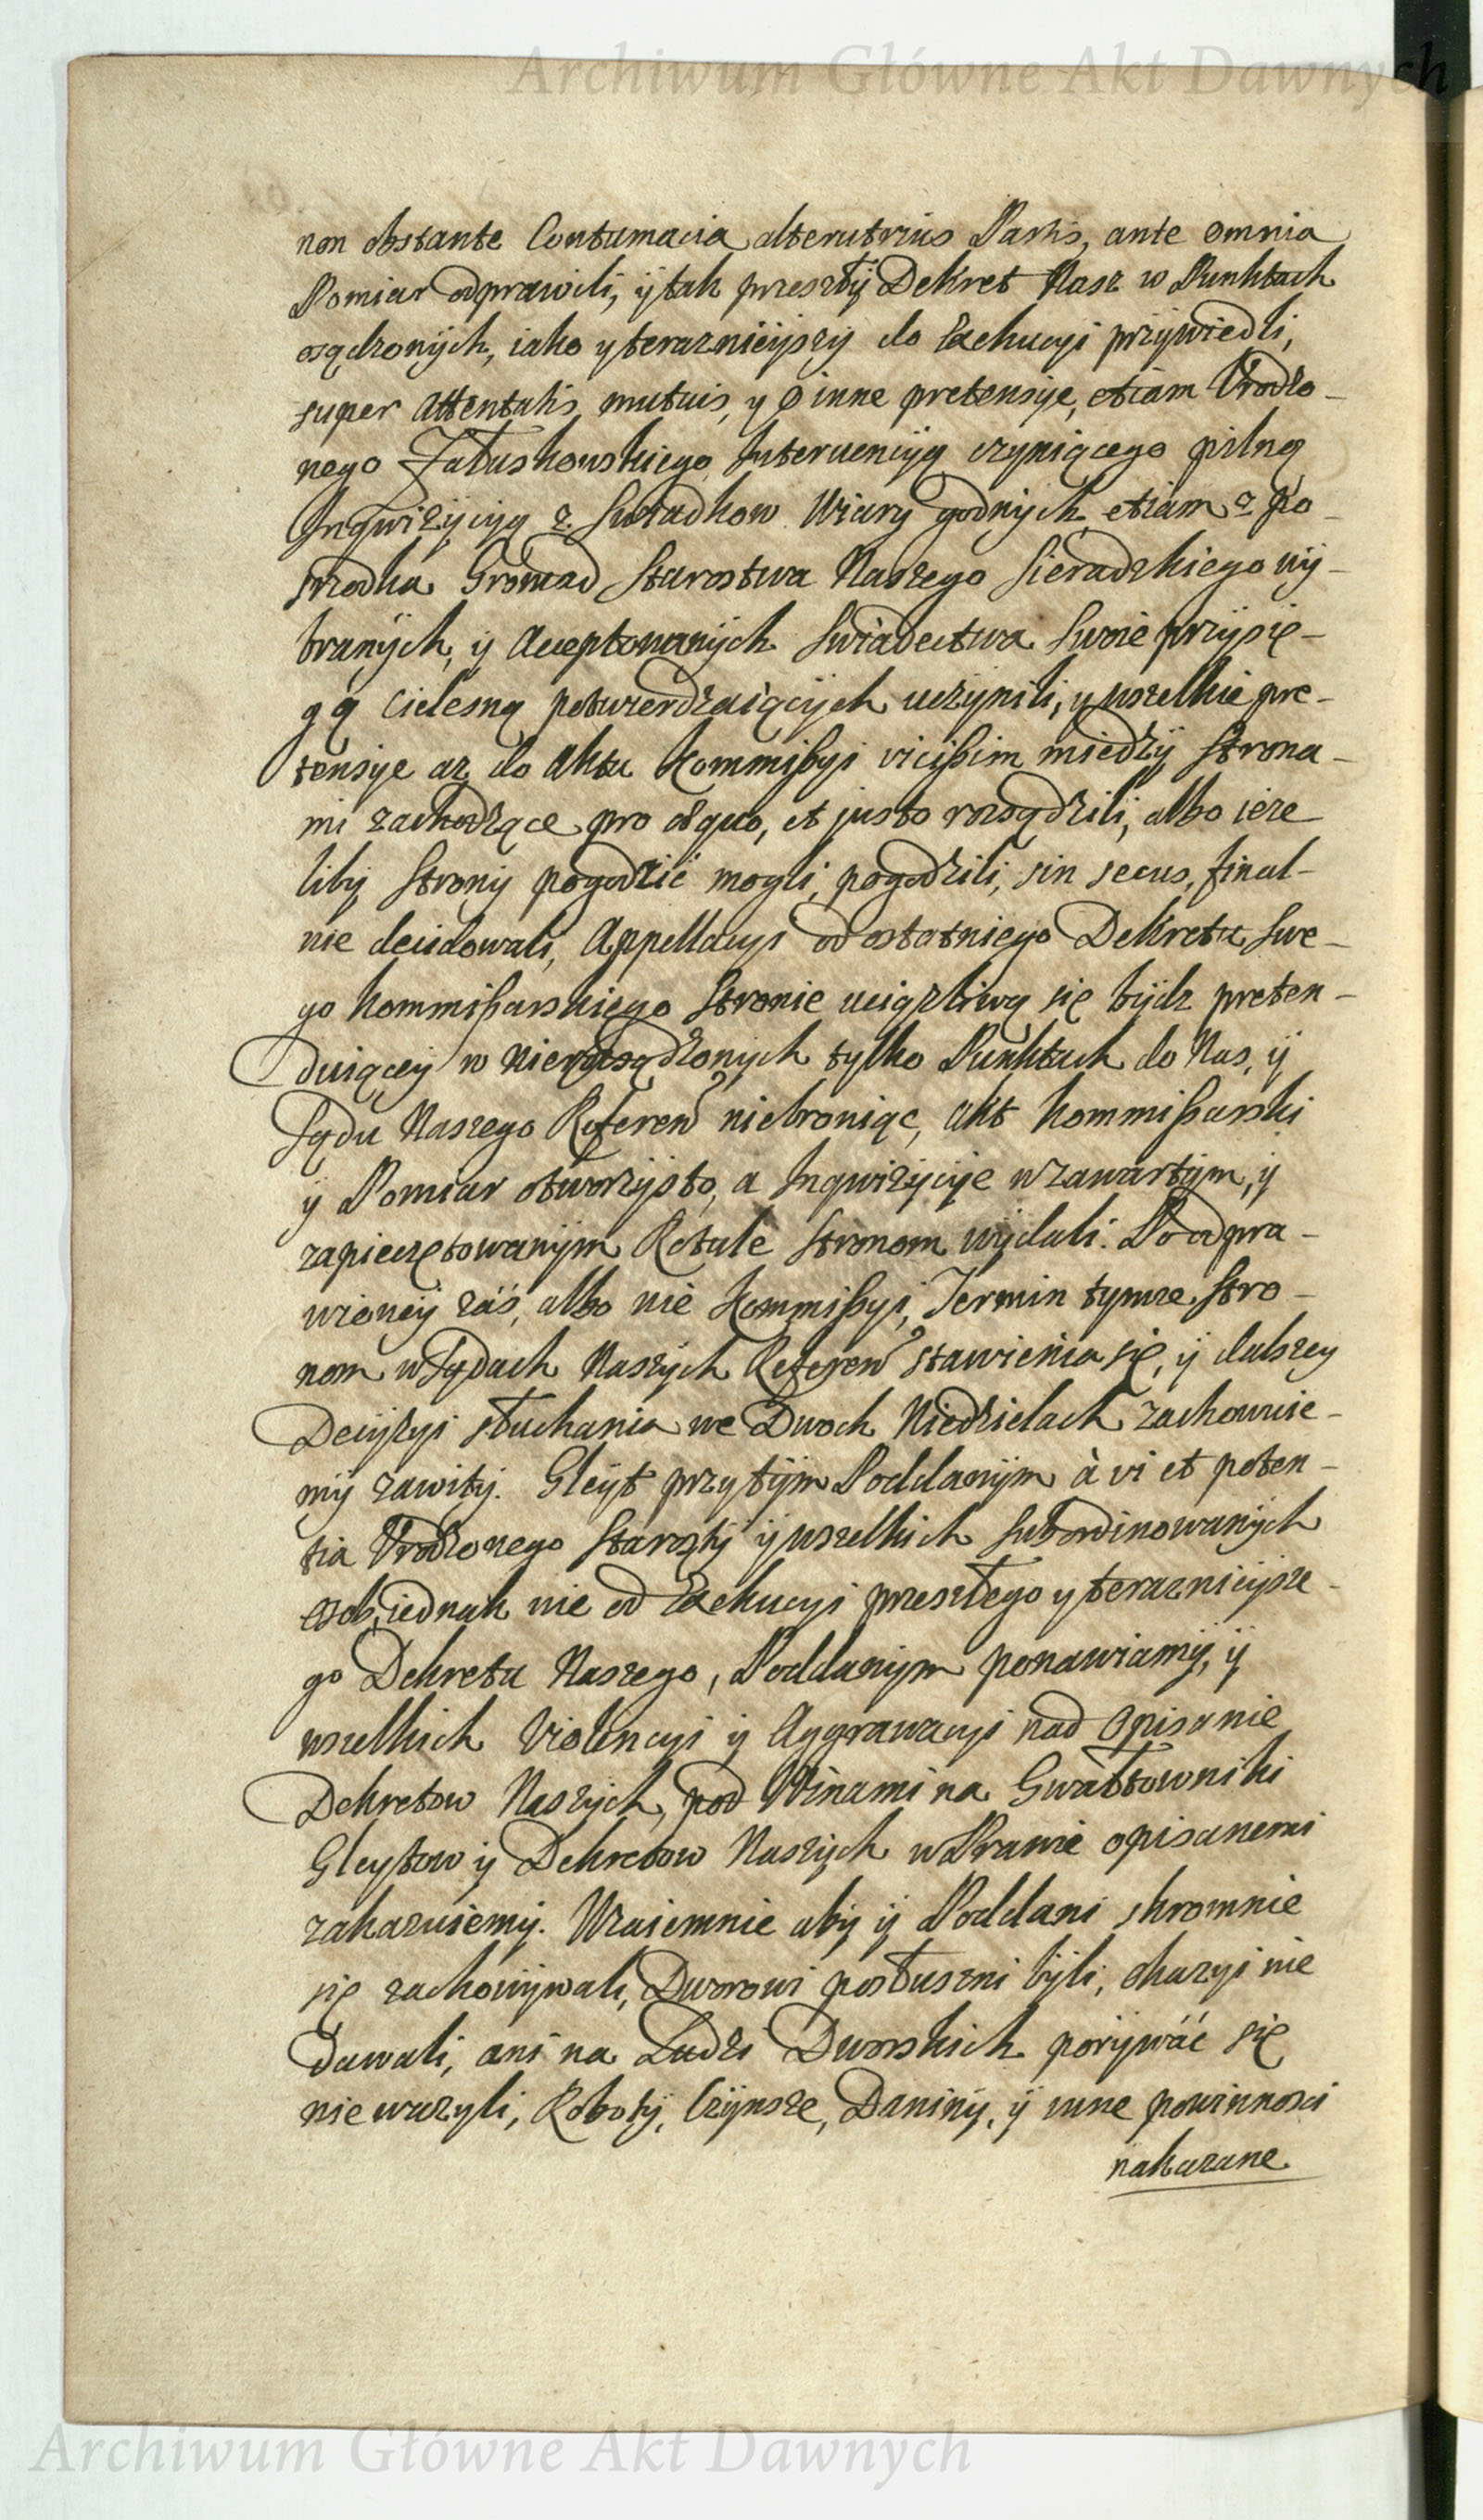 Archiwum Główne Akt Dawnych
non obstante Contumacia alterutrius Partis, ante omnia
Pomiar odprawili, ÿ tak przeszłÿ Dekret Nasz w Punktach
osądzonÿch, iako y teraznieÿszÿ do Exekucyi przÿwiedli,
super Attentatis mutuis, y o inne pretensÿe, etiam Urodzo-
nego Załuskowskiego Interuencÿą czyniącego pilną
Inqwizÿcyą z Swiadkow Wiary godnÿch, etiam z po-
szrodka Gromad Starostwa Naszego Sieradzkiego wÿ-
branÿch, ÿ Acceptowanÿch Swiadectwa Swoie przÿsię-
gą Cielesną potwierdzaiącÿch uczÿnili, y wszelkie pre-
tensye az do Aktu Kommißyi vicißim miedzÿ Strona-
mi zachodzące pro æquo, et justo rozsądzili, albo ieze
libÿ Stronÿ pogodzić mogli, pogodzili, sin secus, final-
nie decidowali, Appellacyi od ostatniego Dekretu Swe-
go Kommißarskiego Stronie uciązliwą się bÿdz preten-
duiącey w nierozsądzonych tylko Punktach do Nas, ÿ
Sądu Naszego Referen niebroniąc, Akt Kommißarski
ÿ Pomiar otworzÿsto, a Inqwizÿcÿe w zawartÿm, ÿ
zapieczętowanÿm Rotule Stronom wÿdali. Po odpra-
wioneÿ záś, albo nie Kommißyi, Termin tymze Stro-
nom w Sądach Naszÿch Referen stawienia się, ÿ dalszey
Decÿzyi słuchania we Dwoch Niedzielach zachowuie-
mÿ zawitÿ. Gleÿt przytÿm Poddanÿm à vi et poten-
tia Urodzonego Starostÿ ÿ wszelkich Subordinowanÿch
osob, iednak nie od Exekucyi przeszłego y teraznieÿsze-
go Dekretu Naszego, Poddanÿm ponawiamÿ, ÿ
wszelkich Violencyi ÿ Aggrawacyi nad opisanie
Dekretow Naszÿch, pod Winami na Gwałtowniki
Gleytow ÿ Dekretow Naszÿch w Prawie opisanemi
zakazuiemÿ. Wzaiemnie abÿ ÿ Poddani skromnie
się zachowÿwali, Dworowi posłuszni bÿli, okazyi nie
dawali, ani na Ludzi Dworskich porÿwáć się
nie wazyli, Robotÿ, Czÿnsze, Daninÿ, ÿ inne powinnosci
nakazane
Archiwum Główne Akt Dawnych